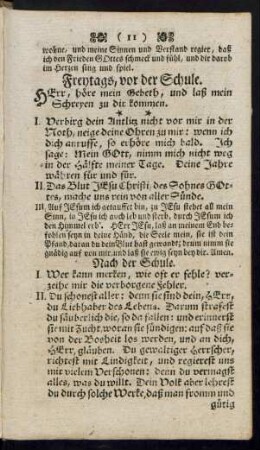 ( 11 )
wohne, und meine Sinnen und Verstand regier, daß
ich den Frieden GOttes schmeck und fühl, und dir darob
im Hertzen sing und spiel.
Freytags, vor der Schule.
HErr, höre mein Gebeth, und laß mein
Schreyen zu dir kommen.
I. Verbirg dein Antlitz nicht vor mir in der
Noth, neige deine Ohren zu mir: wenn ich
dich anruffe, so erhöre mich bald. Ich
sage: Mein GOtt, nimm mich nicht weg
in der Hälfte meiner Tage. Deine Jahre
währen für und für.
II. Das Blut JEsu Christi, des Sohnes GOt-
tes, mache uns rein von aller Sünde.
III. Auf JEsum ich getauffet bin, zu JEsu stehet all mein
Sinn, in JEsu ich auch leb und sterb, durch JEsum ich
den Himmel erb'. HErr JEsu, laß an meinem End be-
fohlen seyn in deine Händ, die Seele mein, sie ist dein
Pfand, daran du dein Blut hast gewandt; drum nimm sie
gnädig auf von mir, und laß sie ewig seyn bey dir. Amen.
Nach der Schule.
I. Wer kann merken, wie oft er fehle? ver-
zeihe mir die verborgene Fehler.
II. Du schonest aller: denn sie sind dein, HErr,
du Liebhaber des Lebens. Darum strafest
du säuberlich die, so da fallen: und erinnerst
sie mit Zucht, woran sie sündigen: auf daß sie
von der Bosheit los werden, und an dich,
HErr, gläuben. Du gewaltiger Herrscher,
richtest mit Lindigkeit, und regierest uns
mit vielem Verschonen: denn du vermagst
alles, was du willt. Dein Volk aber lehrest
du durch solche Werke, daß man fromm und
gütig